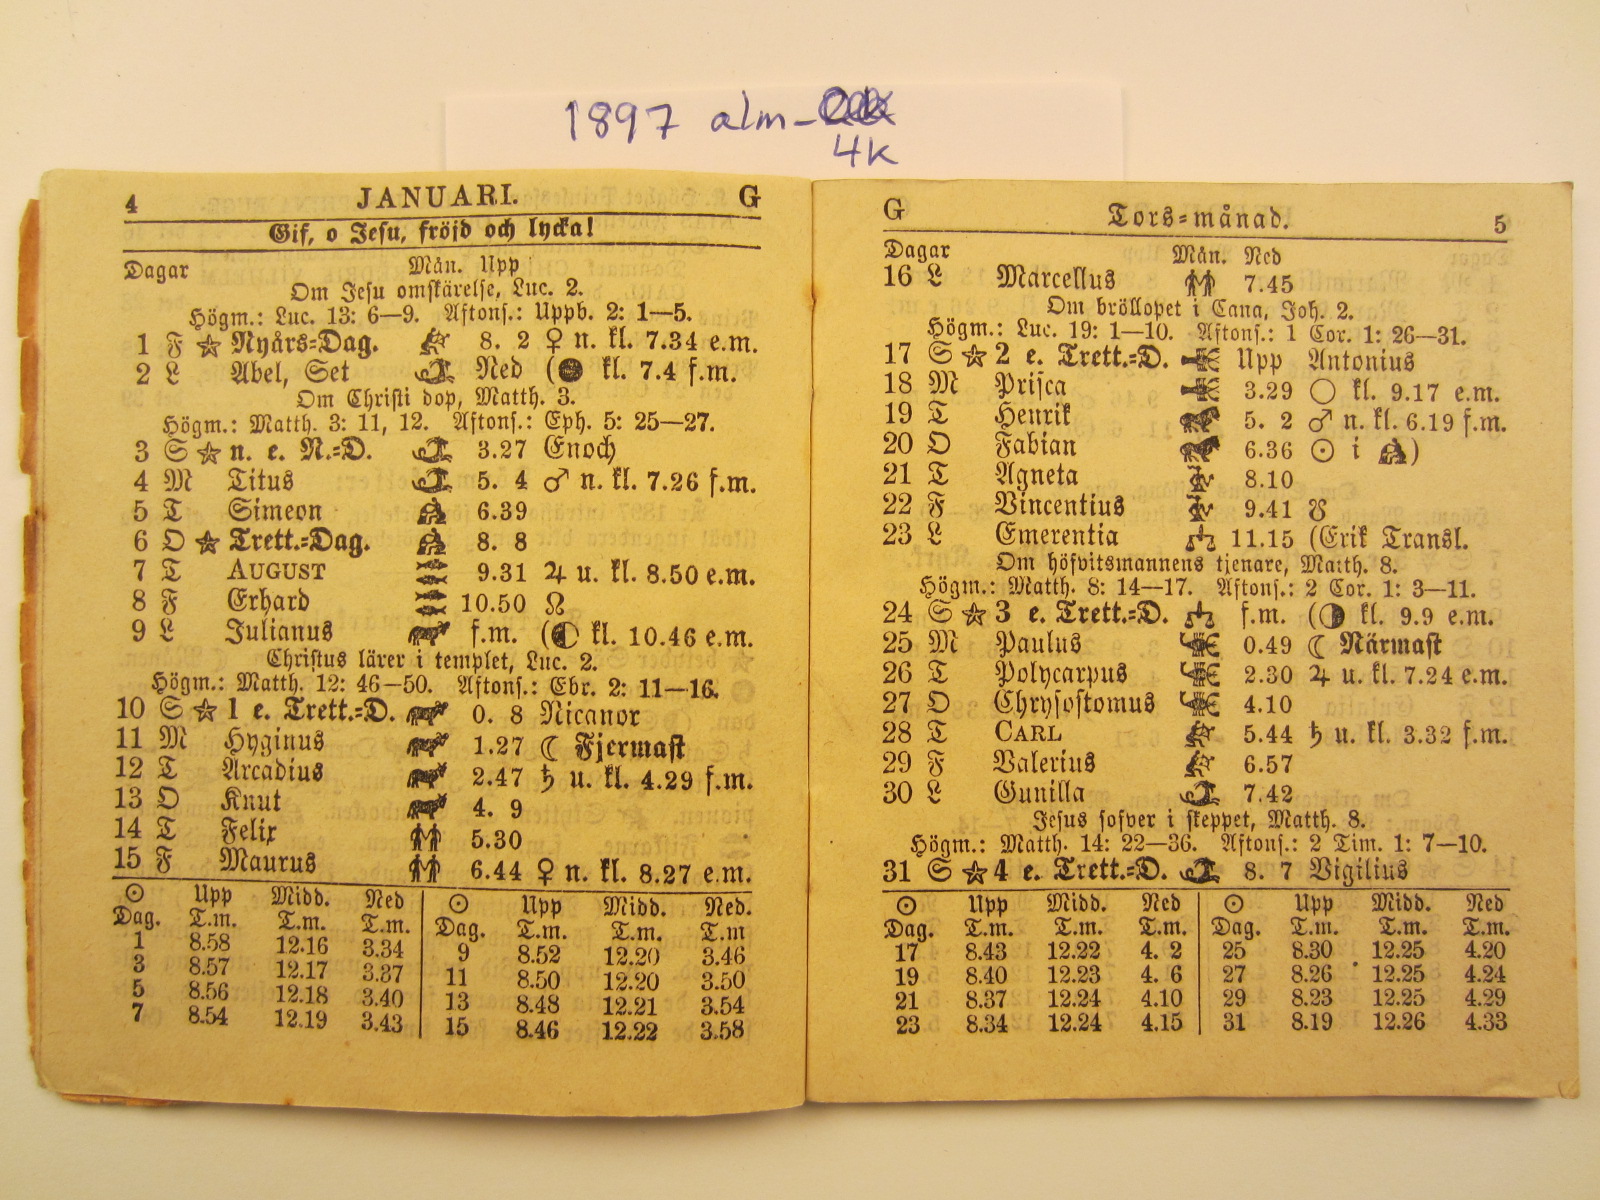 1897 alm-
4k
4 JANUARI. G
Gif, o Jesu, fröjd och lycka!
Dagar Mån. Upp
Om Jesu omskärelse, Luc. 2.
Högm.: Luc. 13: 6—9. Aftons.: Uppb. 2: 1—5.
1 F ☆ Nyårs=Dag. 8. 2 ♀ n. kl. 7.34 e.m.
2 L Abel, Set Ned (● kl. 7.4 f.m.
Om Christi dop, Matth. 3.
Högm.: Matth. 3: 11, 12. Aftons.: Eph. 5: 25—27.
3 S ☆ n. e. N.=D. 3.27 Enoch
4 M Titus 5. 4 ♂ n. kl. 7.26 f.m.
5 T Simeon 6.39
6 O ☆ Trett.=Dag. 8. 8
7 T AUGUST 9.31 ♃ u. kl. 8.50 e.m.
8 F Erhard 10.50 ☊
9 L Julianus f.m. (◐ kl. 10.46 e.m.
Christus lärer i templet, Luc. 2.
Högm.: Matth. 12: 46—50. Aftons.: Ebr. 2: 11—16.
10 S ☆ 1 e. Trett.=D. 0. 8 Nicanor
11 M Hyginus 1.27 ☾ Fjermast
12 T Arcadius 2.47 ♄ u. kl. 4.29 f.m.
13 O Knut 4. 9
14 T Felix 5.30
15 F Maurus 6.44 ♀ n. kl. 8.27 e.m.
☉ Upp Midd. Ned ☉ Upp Midd. Ned.
Dag. T.m. T.m. T.m. Dag. T.m. T.m. T.m
1 8.58 12.16 3.34 9 8.52 12.20 3.46
3 8.57 12.17 3.37 11 8.50 12.20 3.50
5 8.56 12.18 3.40 13 8.48 12.21 3.54
7 8.54 12.19 3.43 15 8.46 12.22 3.58
G Tors=månad. 5
Dagar Mån. Ned
16 L Marcellus 7.45
Om bröllopet i Cana, Joh. 2.
Högm.: Luc. 19: 1—10. Aftons.: 1 Cor. 1: 26—31.
17 S ☆ 2 e. Trett.=D. Upp Antonius
18 M Prisca 3.29 ○ kl. 9.17 e.m.
19 T Henrik 5. 2 ♂ n. kl. 6.19 f.m.
20 O Fabian 6.36 ☉ i ♒)
21 T Agneta 8.10
22 F Vincentius 9.41 ☋
23 L Emerentia 11.15 (Erik Transl.
Om höfvitsmannens tjenare, Matth. 8.
Högm.: Matth. 8: 14—17. Aftons.: 2 Cor. 1: 3—11.
24 S ☆ 3 e. Trett.=D. f.m. (◑ kl. 9.9 e.m.
25 M Paulus 0.49 ☾ Närmast
26 T Polycarpus 2.30 ♃ u. kl. 7.24 e.m.
27 O Chrysostomus 4.10
28 T CARL 5.44 ♄ u. kl. 3.32 f.m.
29 F Valerius 6.57
30 L Gunilla 7.42
Jesus sofver i skeppet, Matth. 8.
Högm.: Matth. 14: 22—36. Aftons.: 2 Tim. 1: 7—10.
31 S ☆ 4 e. Trett.=D. 8. 7 Vigilius
☉ Upp Midd. Ned ☉ Upp Midd. Ned
Dag. T.m. T.m. T.m. Dag. T.m. T.m. T.m.
17 8.43 12.22 4. 2 25 8.30 12.25 4.20
19 8.40 12.23 4. 6 27 8.26 12.25 4.24
21 8.37 12.24 4.10 29 8.23 12.25 4.29
23 8.34 12.24 4.15 31 8.19 12.26 4.33